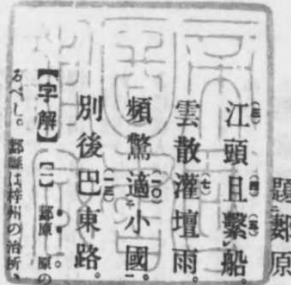 題郪原
江頭且繫船。
雲散灌壇雨。
頻驚適小國。
別後巴東路。
【字解】〔一〕郪原 原の
るべし。郪縣は梓州の治所